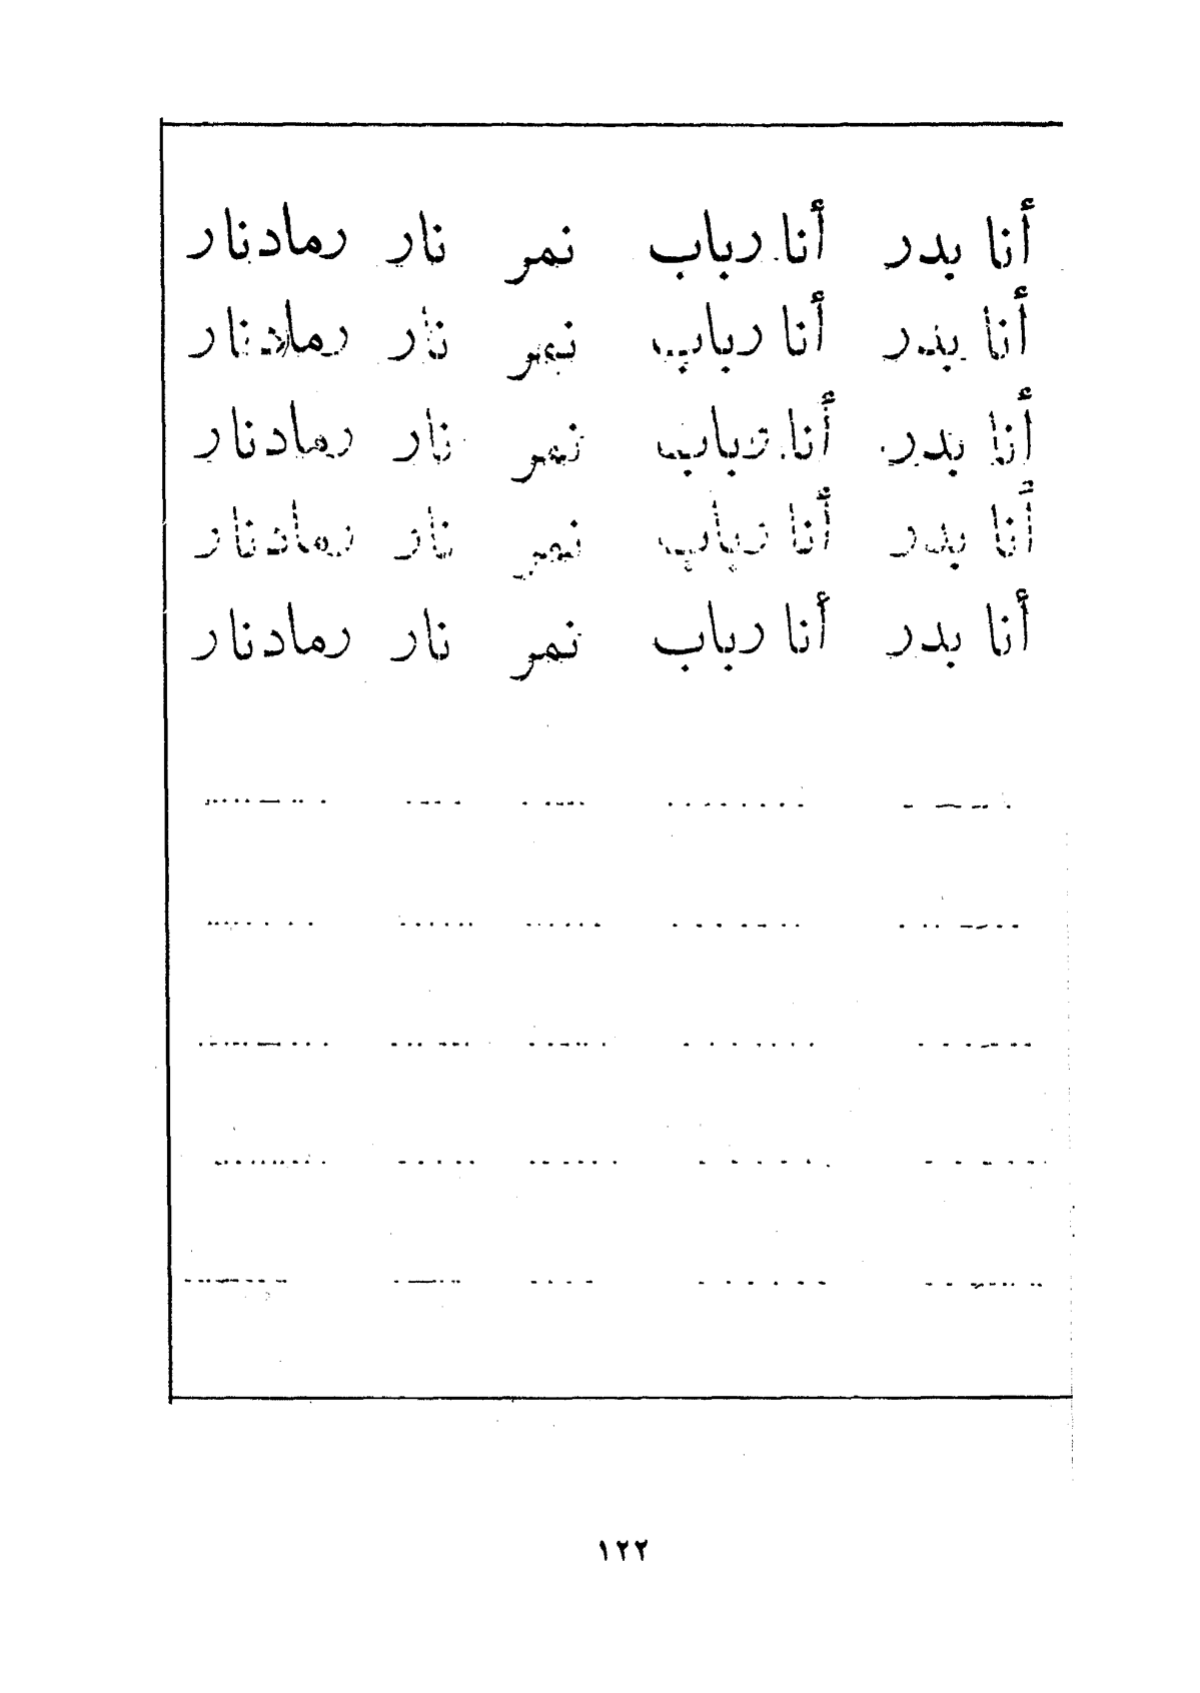 أنا بدر أنا رباب نمر نار رماد نار
أنا بدر أنا رباب نمر نار رماد نار
أنا بدر أنا رباب نمر نار رماد نار
أنا بدر أنا رباب نمر نار رماد نار
أنا بدر أنا رباب نمر نار رماد نار
١٢٢